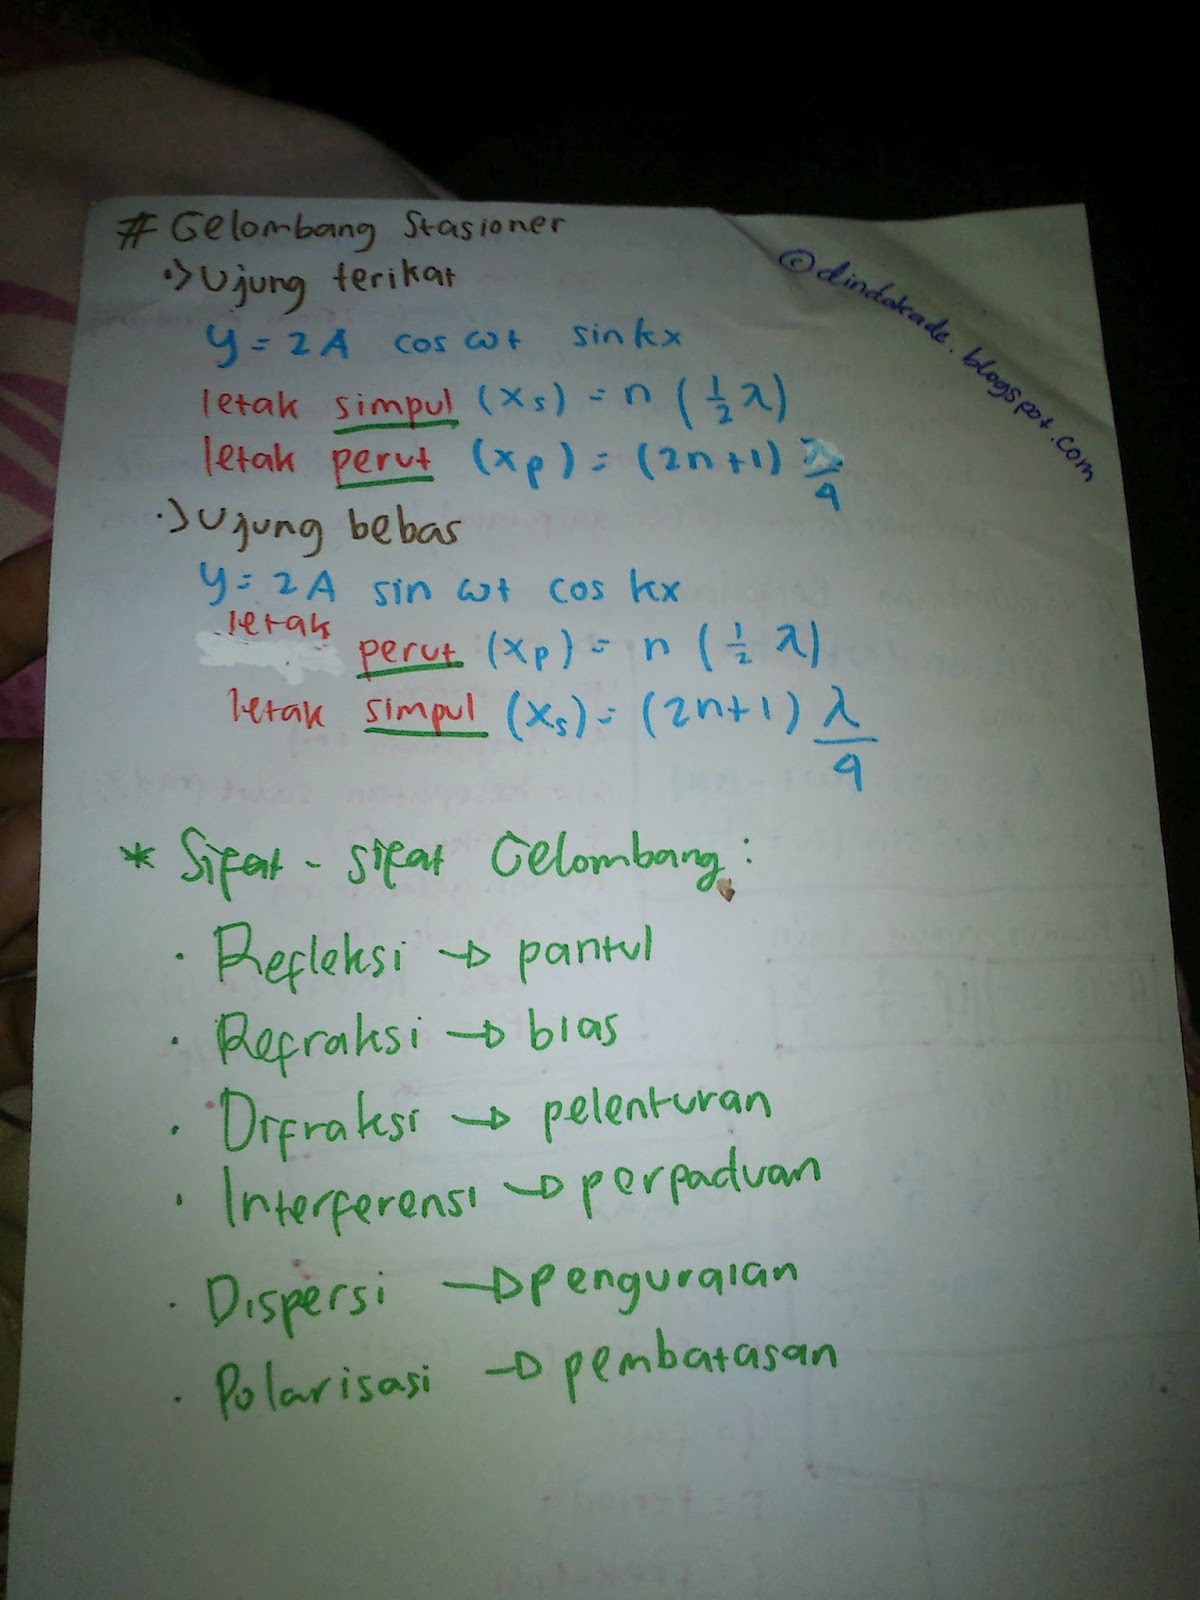 # Gelombang Stasioner
·> Ujung terikat
y = 2A cos ωt sin kx
letak simpul (xs) = n (1/2 λ)
letak perut (xp) = (2n+1) λ/4
·> Ujung bebas
y = 2A sin ωt cos kx
letak perut (xp) = n (1/2 λ)
letak simpul (xs) = (2n+1) λ/4
* Sifat - sifat Gelombang :
· Refleksi → pantul
· Refraksi → bias
· Difraksi → pelenturan
· Interferensi → perpaduan
· Dispersi → penguraian
· Polarisasi → pembatasan
©dindakade.blogspot.com